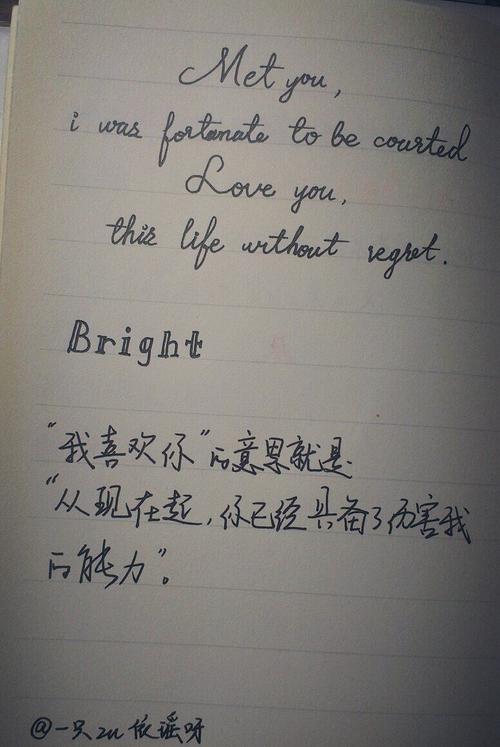 Met you,
i was fortunate to be courted
Love you,
this life without regret.
Bright
“我喜欢你”的意思就是
“从现在起,你已经具备了伤害我
的能力”。
@一只zu依瑶呀